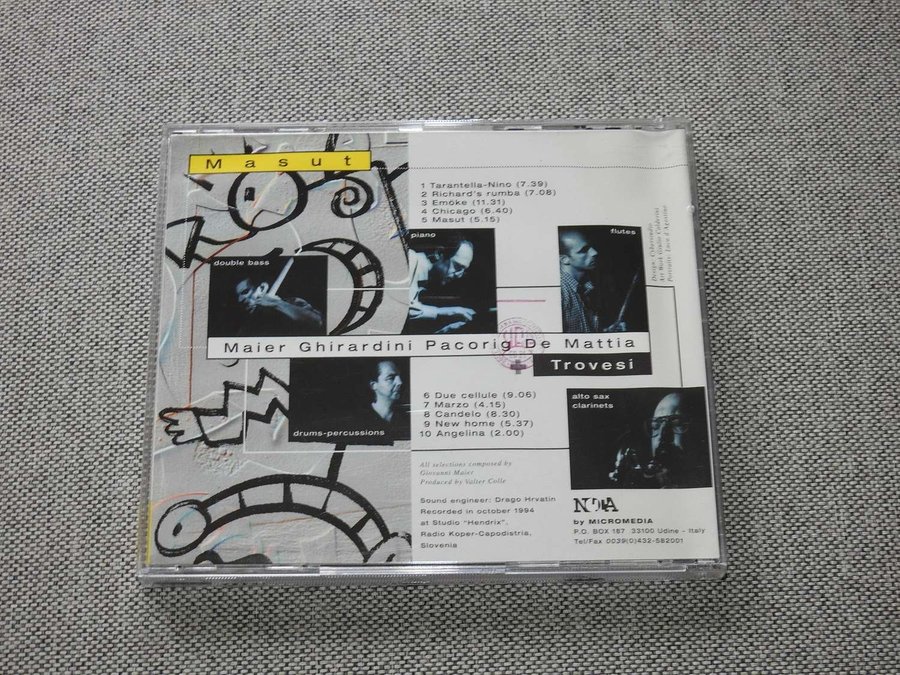 Masut
1 Tarantella-Nino (7.39)
2 Richard's rumba (7.08)
3 Emöke (11.31)
4 Chicago (6.40)
5 Masut (5.15)
double bass
piano
flutes
Design: Cyberstudio
Art Work Giulio Calderini
Portraits: Luca d'Agostino
Maier Ghirardini Pacorig De Mattia
Trovesi
drums-percussions
6 Due cellule (9.06)
7 Marzo (4.15)
8 Candelo (8.30)
9 New home (5.37)
10 Angelina (2.00)
alto sax
clarinets
All selections composed by
Giovanni Maier
Produced by Valter Colle
Sound engineer: Drago Hrvatin
Recorded in october 1994
at Studio "Hendrix",
Radio Koper-Capodistria,
Slovenia
by MICROMEDIA
P.O. BOX 187 33100 Udine - Italy
Tel/Fax 0039(0)432-582001